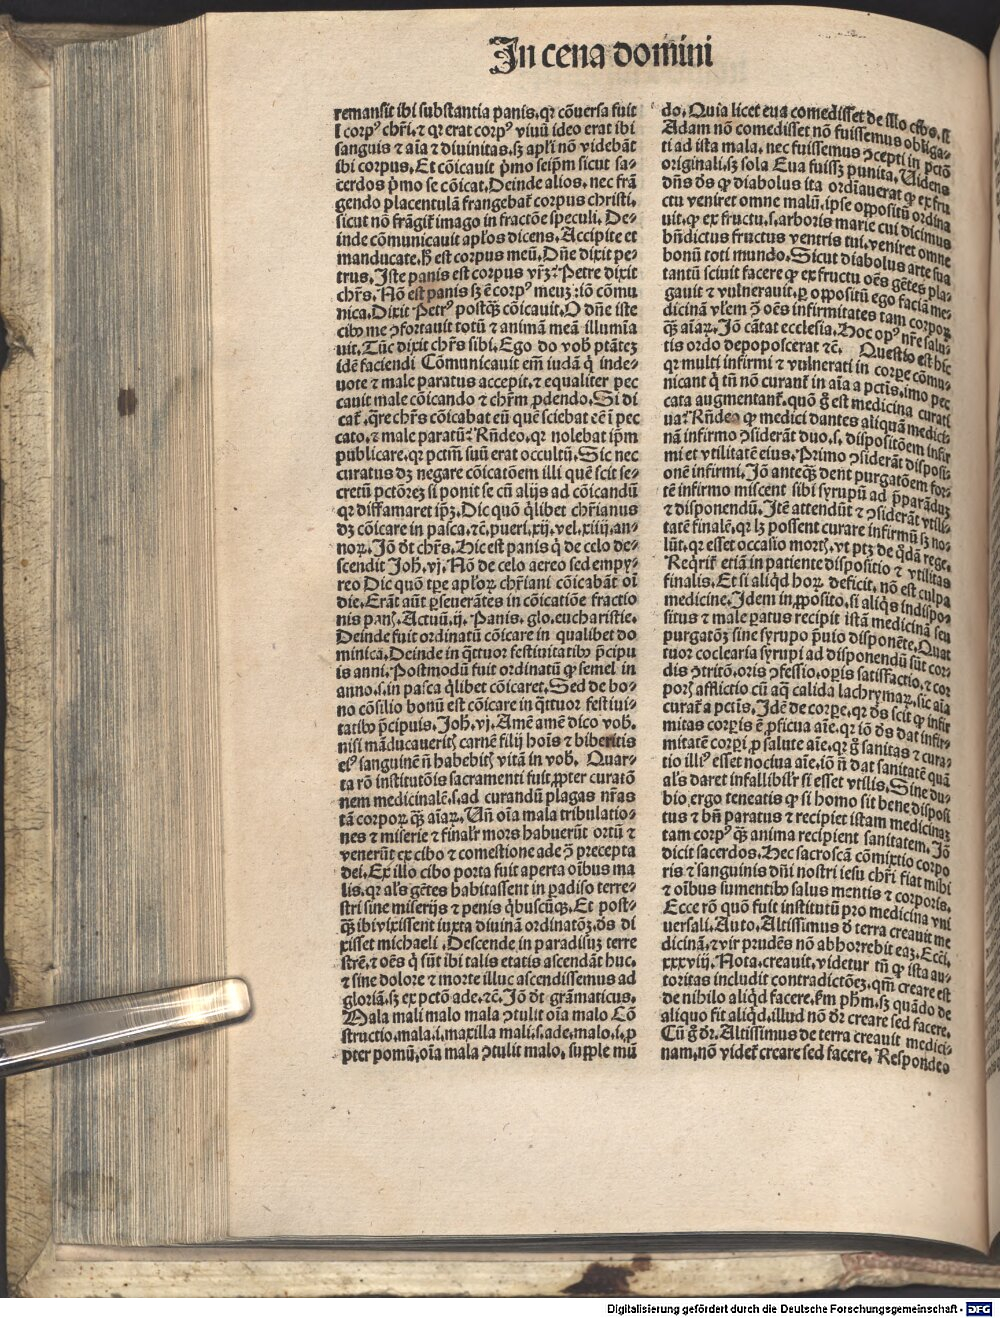 In cena domini
remansit ibi substantia panis, qꝛ cōuersa fuit
ī corpꝰ chr̄i, ⁊ qꝛ erat corpꝰ viuū ideo erat ibi
sanguis ⁊ aīa ⁊ diuinitas, sꝫ apl̄i nō videbāt
ibi corpus. Et cōicauit p̄mo seip̄m sicut sa⸗
cerdos p̄mo se cōicat. Deinde alios, nec frā
gendo placentulā frangebat̄ corpus christi,
sicut nō frāgit̄ imago in fractōe speculi. De⸗
inde cōmunicauit apl̄os dicens. Accipite et
manducate, h̄ est corpus meū. Dn̄e dixit pe⸗
trus. Iste panis est corpus vr̄ꝫ? Petre dixit
chr̄s. Nō est panis sꝫ ē corpꝰ meuꝫ: iō cōmu
nica. Dixit Petrꝰ postq̄ꝫ cōicauit. O dn̄e iste
cibꝰ me ↄfortauit totū ⁊ animā meā illumīa
uit. Tūc dixit chr̄s sibi. Ego do vob̄ ptāteꝫ
idē faciendi Cōmunicauit em̄ iudā q̄ inde⸗
uote ⁊ male paratus accepit, ⁊ equaliter pec
cauit male cōicando ⁊ chr̄m ꝓdendo. Si di
cat̄, q̄re chr̄s cōicabat eū quē sciebat eē ī pec
cato, ⁊ male paratū? Rn̄deo, qꝛ nolebat ip̄m
publicare, qꝛ pctm̄ suū erat occultū. Sic nec
curatus dꝫ negare cōicatōem illi quē scit se⸗
cretū pctōreꝫ si ponit se cū alijs ad cōicandū
qꝛ diffamaret ip̄ꝫ. Dic quō q̄libet chr̄ianus
dꝫ cōicare in pasca, ⁊c. pueri. xij. vel. xiiij. an⸗
noꝝ. Iō dt̄ chr̄s. Hic est panis q̄ de celo de⸗
scendit Joh̄. vj. Nō de celo aereo sed empy⸗
reo Dic quō tꝑe apl̄oꝝ chr̄iani cōicabāt oī
die. Erāt aūt ꝑseuerātes in cōicatiōe fractio
nis panꝭ. Actuū. ij. Panis. glo. eucharistie.
Deinde fuit ordinatū cōicare in qualibet do
minica. Deinde in q̄ttuor festiuitatibꝰ p̄cipu
is anni. Postmodū fuit ordinatū ꝙ semel in
anno. s. in pasca q̄libet cōicaret. Sed de bo⸗
no cōsilio bonū est cōicare in q̄ttuor festiui⸗
tatibꝰ p̄cipuis. Joh̄. vj. Amē amē dico vob̄.
nisi māducaueritꝭ carnē filij hoīs ⁊ biberitis
eiꝰ sanguinē n̄ habebitꝭ vitā in vob̄. Quar⸗
ta rō institutōis sacramenti fuit ꝓpter curatō
nem medicinalē. s. ad curandū plagas nr̄as
tā corpoꝝ q̄ꝫ aīaꝝ. Un̄ oīa mala tribulatio⸗
nes ⁊ miserie ⁊ finalr̄ mors habuerūt ortū ⁊
venerūt ex cibo ⁊ comestione ade ↄ̄ precepta
dei. Ex illo cibo porta fuit aperta oībus ma
lis, qꝛ al̄s gētes habitassent in ꝑadiso terre⸗
stri sine miserijs ⁊ penis q̄buscūqꝫ. Et post⸗
q̄ꝫ ibi vixissent iuxta diuinā ordinatōꝫ, ds̄ di
xisset michaeli. Descende in paradisuꝫ terre
strē, ⁊ oēs q̄ sūt ibi talis etatis ascendāt huc,
⁊ sine dolore ⁊ morte illuc ascendissemus ad
gloriā, sꝫ ex pctō ade, ⁊c. Iō dt̄ grāmaticus.
Mala mali malo mala ↄtulit oīa malo Cō
structio. mala. i. maxilla mali. s. ade, malo. i. ꝓ
pter pomū, oīa mala ↄtulit malo, supple mū
do. Quia licet eua comedisset de illo cibo, si
Adam nō comedisset nō fuissemus obliga⸗
ti ad ista mala, nec fuissemus ↄcepti in pctō
originali, sꝫ sola Eua fuissꝫ punita. Uidens
dn̄s ds̄ ꝙ diabolus ita ordīauerat ꝙ ex fru
ctu veniret omne malū, ip̄se oppositū ordina
uit, ꝙ ex fructu. s. arboris marie cui dicimus
bn̄dictus fructus ventris tui, veniret omne
bonū toti mundo. Sicut diabolus arte sua
tantū sciuit facere ꝙ ex fructu oēs gētes pla⸗
gauit ⁊ vulnerauit, ꝑ oppositū ego faciā me⸗
dicinā vl̄em ↄ̄ oēs infirmitates tam corpoꝝ
q̄ꝫ aīaꝝ. Iō cātat ecclesia. Hoc opꝰ nr̄e salu⸗
tis ordo depoposcerat ⁊c. Questio est hic
qꝛ multi infirmi ⁊ vulnerati in corꝑe cōmu⸗
nicant q̄ tn̄ nō curant̄ in aīa a pctīs, imo pec
cata augmentant̄, quō ḡ est medicina curati
ua? Rn̄deo ꝙ medici dantes aliquā medici⸗
nā infirmo ↄsiderāt duo. s. dispositōem infir
mi et vtilitatē eius. Primo ↄsiderāt disposi⸗
onē infirmi. Iō anteqꝫ dent purgatōem for⸗
tē infirmo miscent sibi syrupū ad p̄parāduꝫ
⁊ disponendū. Itē attendūt ⁊ ↄsiderāt vtili⸗
tatē finalē, qꝛ lꝫ possent curare infirmū sꝫ no⸗
lūt, qꝛ esset occasio mortꝭ, vt ptꝫ de q̄dā rege.
Reqrit̄ etiā in patiente dispositio ⁊ vtilitas
finalis. Et si aliqd hoꝝ deficit, nō est culpa
medicine. Idem in ꝓposito, si aliqs indispo⸗
situs ⁊ male ꝑatus recipit istā medicinā seu
purgatōꝫ sine syrupo p̄uio disponēte. Quat
tuor coclearia syrupi ad disponendū sūt cor⸗
dis ↄtritō, oris ↄfessio, oꝑis satisfactio, ⁊ cor
porꝭ afflictio cū aq̄ calida lachrymaꝝ, sic aīa
curat̄ a pctīs. Idē de corꝑe, qꝛ ds̄ scit ꝙ infir
mitas corꝑis ē ꝓficua aīe, qꝛ iō ds̄ dat infir⸗
mitatē corꝑi ꝓ salute aīe, qꝛ ḡ sanitas ⁊ cura⸗
tio illiꝰ esset nociua aīe, iō n̄ dat sanitatē quā
al̄s daret infallibilr̄ si esset vtilis. Sine du⸗
bio ergo teneatis ꝙ si homo sit bene disposi
tus ⁊ bn̄ paratus ⁊ recipiet istam medicinaꝫ
tam corpꝰ q̄ꝫ anima recipient sanitatem. Iō
dicit sacerdos. Hec sacroscā cōmixtio corpo
ris ⁊ sanguinis dn̄i nostri iesu chr̄i fiat mihi
⁊ oībus sumentibꝰ salus mentis ⁊ corporis.
Ecce rō quō fuit institutū pro medicina vni
uersali. Auto. Altissimus d̄ terra creauit me
dicinā, ⁊ vir prudēs nō abhorrebit eaꝫ. Ecci.
xxxviij. Nota, creauit, videtur tn̄ ꝙ ista au⸗
toritas includit contradictōeꝫ, qm̄ creare est
de nihilo aliqd facere, scd̄m ph̄m, sꝫ quādo de
aliquo fit aliqd, illud nō dr̄ creare sed facere.
Cū ḡ dr̄. Altissimus de terra creauit medici⸗
nam, nō videt̄ creare sed facere. Respondeo
Digitalisierung gefördert durch die Deutsche Forschungsgemeinschaft - DFG